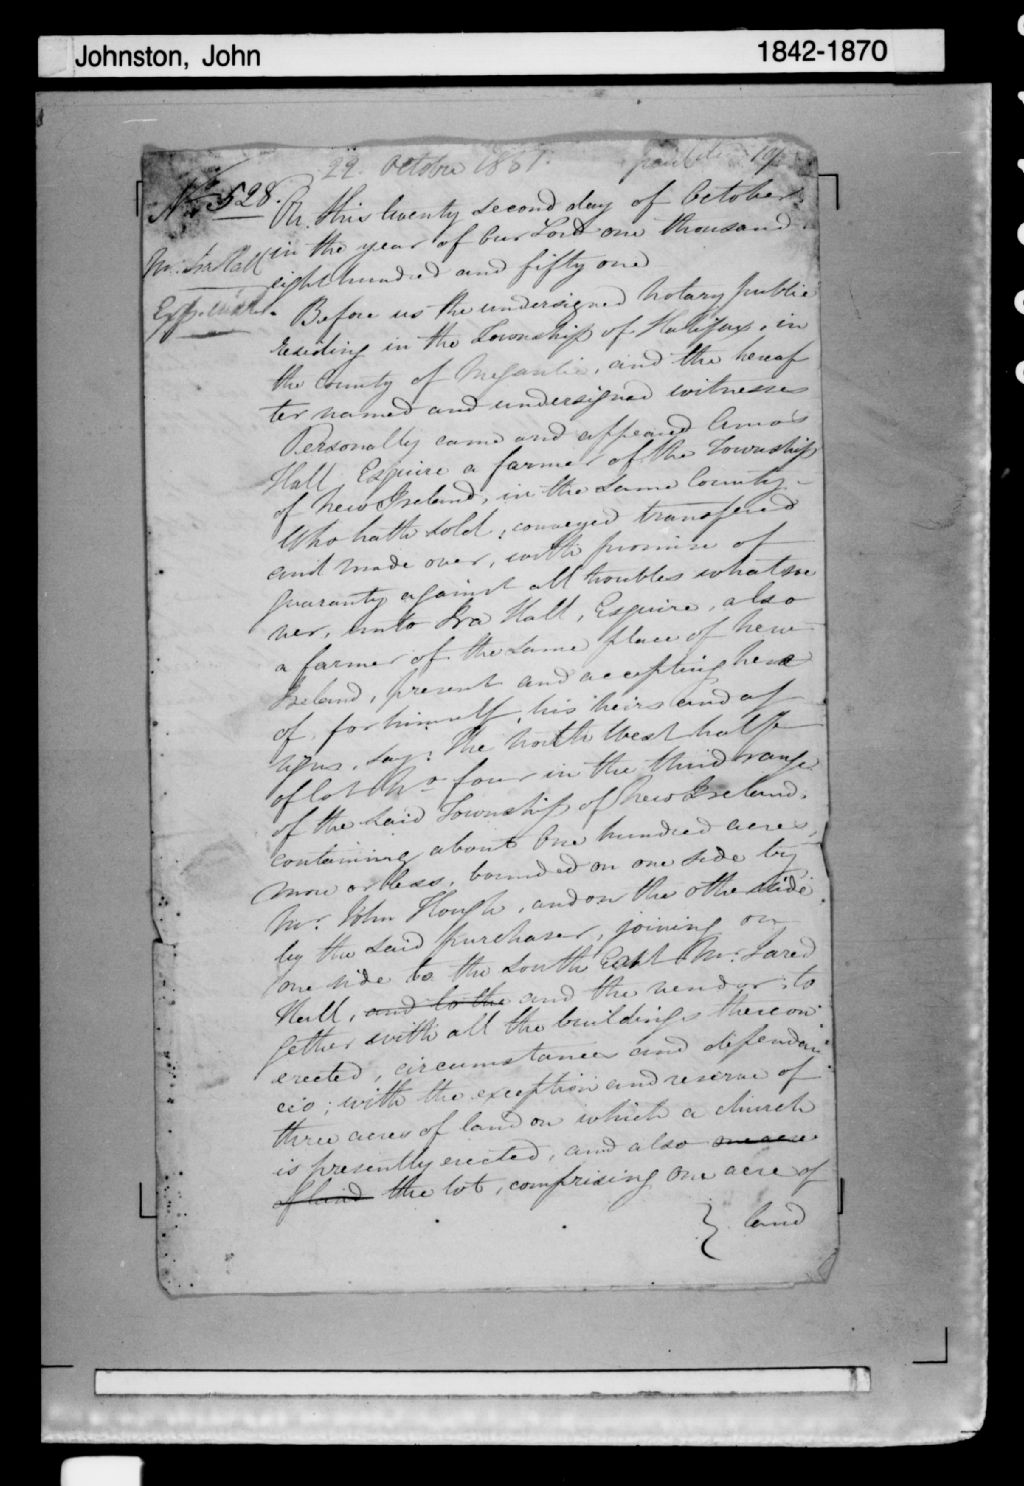 Johnston, John
1842-1870
22. October 1851.
No. 528.
On this twenty second day of October,
in the year of Our Lord one thousand
Mr. Ira Hall
eight hundred and fifty one
Before us the undersigned Notary public
residing in the Township of Halifax, in
the County of Megantic, and the hereaf
ter named and undersigned witnesses
Personally came and appeared Amos
Hall Esquire a farmer of the Township
of New Ireland, in the same County –
Who hath sold, conveyed transfered
and made over, with promise of
guaranty against all troubles whatsoe
ver, unto Ira Hall, Esquire, also
a farmer of the same place of New
Ireland, present and accepting here
of, for himself, his heirs and as
signs, say: The North West half
of lot No four in the third range
of the said Township of New Ireland,
containing about One hundred acres,
more or less, bounded on one side by
Mr. John Hough, and on the other side
by the said purchaser, joining on
one side to the South East Mr. Jared
Hall, and to the and the vendor; to
gether with all the buildings thereon
erected, circumstances and dependan
cies; with the exception and reserve of
three acres of land on which a church
is presently erected, and also one acre
of land the lot, comprising one acre of
land